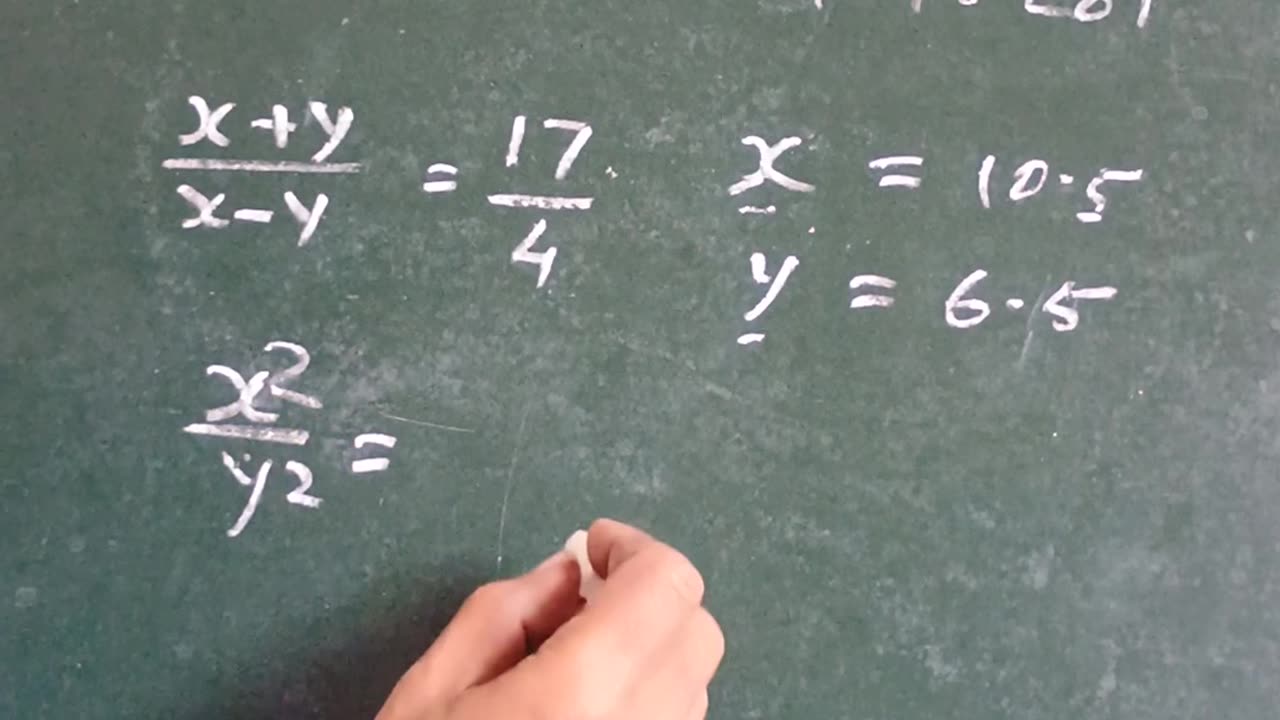 x+y/x-y = 17/4
x = 10.5
y = 6.5
x²/y² =